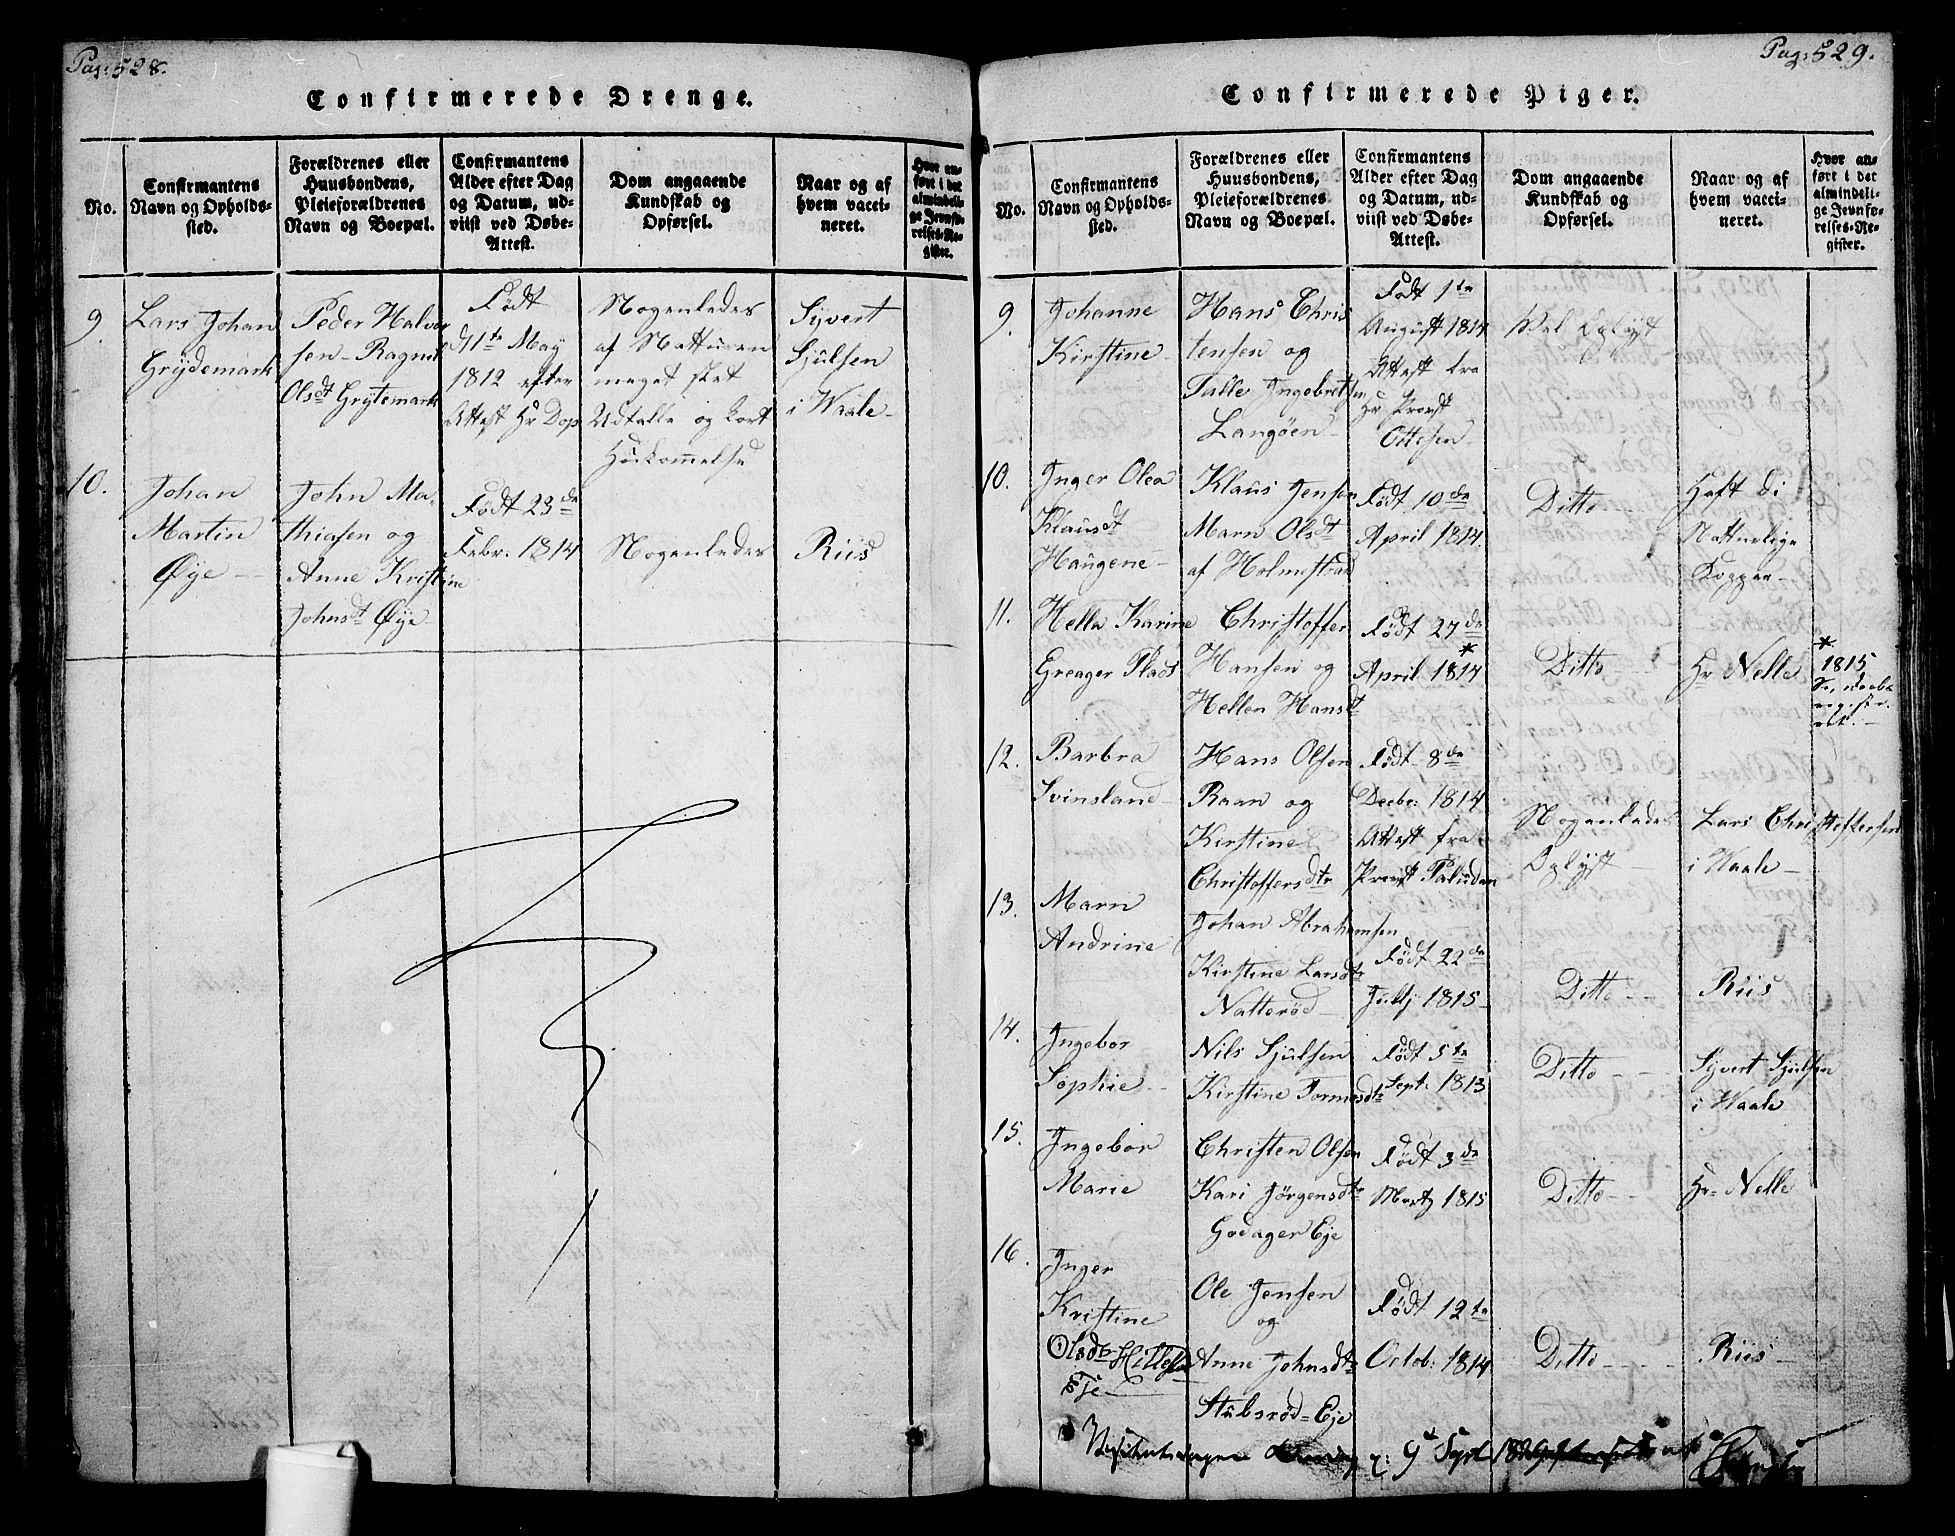 Pag: 528.
Confirmerede Drenge.
No.
Confirmantens Navn og Opholds-sted.
Forældrenes eller Huusbondens, Pleieforældrenes Navn og Boepæl.
Confirmantens Alder efter Dag og Datum, ud-viist ved Døbe-Attest.
Dom angaaende Kundskab og Opførsel.
Naar og af hvem vacci-neret.
Hvor an-ført i det almindeli-ge Jevnfø-relses-Re-gister.
9.
Lars Johan
Grÿdemark
Peder Halvor
sen - Ragnil
Olsdt Grytemark
Født
d 11te May
1812 efter
Attest Hr Dop
Nogenledes
af Natturen
meget slet
Udtalle og kort
Hukommelse
Syvert
Sjulsen
i Waale-
10.
Johan
Martin
Øÿe -
John Ma-
thiasen og
Anne Kristine
Johnsdt Øÿe
Født 23de
Febr: 1814
Nogenledes
Riis
Pag: 529.
Confirmerede Piger.
No.
Confirmantens Navn og Opholds-sted.
Forældrenes eller Huusbondens, Pleieforældrenes Navn og Boepæl.
Confirmantens Alder efter Dag og Datum, ud-viist ved Døbe-Attest.
Dom angaaende Kundskab og Opførsel.
Naar og af hvem vacci-neret.
Hvor an-ført i det almindeli-ge Jevnfø-relses-Re-gister.
9.
Johanne
Kirstine-
Hans Chris
tensen og
Talle Ingebretsen
Langöen-
Født 1te
August 1814
Attest fra
Hr Provst
Ottesen-
Vel Oplyst
10.
Inger Olea
Klausdt
Haugene-
Klaus Jensen
Marn Olsdt
af Holmestrand
Født 10de
April 1814.
Ditto
Haft di
Nattuelige
Kopper-
11.
Hella Karine
Greager Plads
Christoffer
Hansen og
Hellen Hansdt
Født 27de
April 1814 *
Ditto
Hr Nelle
* 1815
12.
Barbra
Svinsland-
Hans Olsen
Raan og
Kirstine
Christoffersdtr
Født 8de
Decbr: 1814
Attest fra
Provst Paludan
Nogenledes
Oplyst
Lars Christoffersen
i Waale-
13.
Marn
Andrine
Johan Abrahamsen
Kirstine Larsdtr
Natteröd-
Født 22de
Julij 1815-
Ditto
Riis
14.
Ingebor
Sophie-
Nils Sjulsen
Kirstine Tormosdtr
Født 5te
Sept: 1813
Ditto
Syvert Sjulsen
i Waale
15.
Ingebor
Marie
Christen Olsen
Kari Jörgensdtr
Godager Eje
Født 3de
Martz 1815
Ditto
Hr Nelle
16.
Inger
Kristine
Olsdtr Hillestad
Eje
Ole Jensen
og
Anne Johnsdtr
Stubsröd=Eje
Født 12te
Octob: 1814
Ditto
Riis-
9d Sept 1829